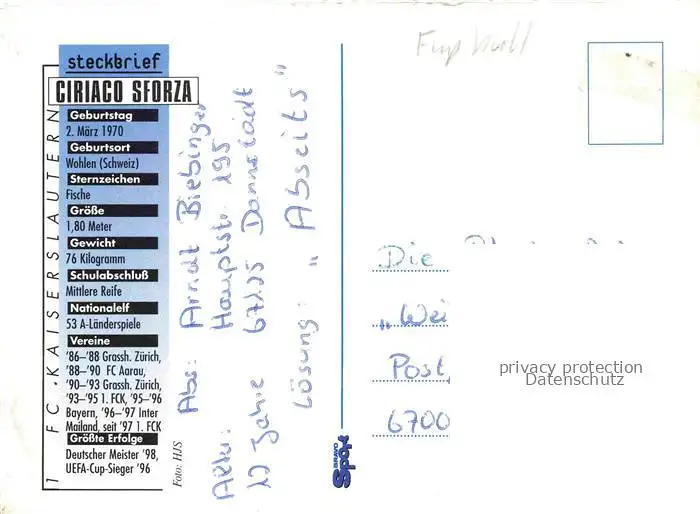 steckbrief
CIRIACO SFORZA
Geburtstag
2. März 1970
Geburtsort
Wohlen (Schweiz)
Sternzeichen
Fische
Größe
1,80 Meter
Gewicht
76 Kilogramm
Schulabschluß
Mittlere Reife
Nationalelf
53 A-Länderspiele
Vereine
'86–'88 Grassh. Zürich,
'88–'90 FC Aarau,
'90–'93 Grassh. Zürich,
'93–'95 1. FCK, '95–'96
Bayern, '96–'97 Inter
Mailand, seit '97 1. FCK
Größte Erfolge
Deutscher Meister '98,
UEFA-Cup-Sieger '96
1 FC · KAISERSLAUTERN
Foto: HJS
Abs: Arndt Biebinger
Hauptstr. 195
67125 Dannstadt
Alter:
12 Jahre
Lösung: "Abseits"
Sport
Die
„Wei
Post
6700
privacy protection
Datenschutz